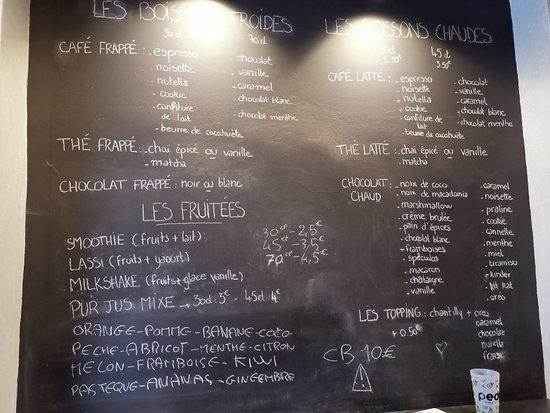 LES BOISSONS FROIDES
30cl 70cl
CAFÉ FRAPPÉ: . espresso . chocolat
. noisette . vanille
. nutella . caramel
. cookie . chocolat blanc
. confiture de lait . chocolat menthe
. beurre de cacahuète
THÉ FRAPPÉ: . chai épicé ou vanille
. matcha
CHOCOLAT FRAPPÉ: noir ou blanc
LES FRUITÉES
SMOOTHIE (fruits + lait) 30cl - 2,5€
LASSI (fruits + yaourt) 45cl - 3,5€
MILKSHAKE (fruits + glace vanille) 70cl - 4,5€
PUR JUS MIXE - 30cl: 3€ - 45cl: 4€
ORANGE - POMME - BANANE - COCO
PECHE - ABRICOT - MENTHE - CITRON
MELON - FRAMBOISE - KIWI
PASTEQUE - ANANAS - GINGEMBRE
LES BOISSONS CHAUDES
30cl 45cl
2.50€ 3.50€
CAFÉ LATTÉ: . espresso . chocolat
. noisette . vanille
. nutella . caramel
. cookie . chocolat blanc
. confiture de lait . chocolat menthe
. beurre de cacahuète
THÉ LATTÉ: . chai épicé ou vanille
. matcha
CHOCOLAT CHAUD : . noix de coco . caramel
. noix de macadamia . noisette
. marshmallow . praliné
. crème brulée . cookie
. pain d'épices . cannelle
. chocolat blanc . menthe
. framboises . miel
. spéculos . tiramisu
. macaron . kinder
. châtaigne . kit kat
. vanille . oréo
LES TOPPING: chantilly + oreo
+ 0.50€ caramel
chocolat
nutella
fraise
CB 10€